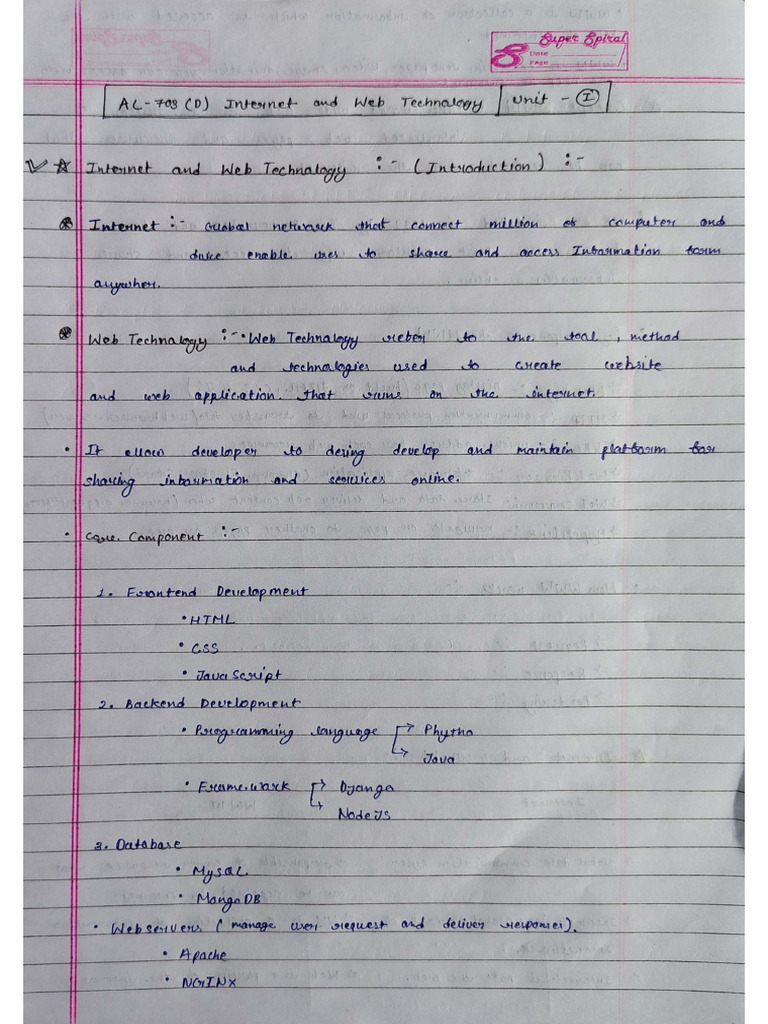 Super Spiral
Date
Page
AL-703 (D) Internet and Web Technology | Unit - I
Internet and Web Technology :- (Introduction) :-
Internet :- Global network that connect million of computer and
enable user to share and access Information form
anywher.
Web Technology :- • Web Technology refer to the tool, method
and technologies used to create website
and web application that runs on the internet.
• It allows developer to desing develop and maintain platform for
sharing information and services online.
• Core Component :-
1. Frontend Development
• HTML
• CSS
• JavaScript
2. Backend Development
• Programming language → Phytho
→ Java
• Framework → Django
→ NodeJS
3. Database
• MySQL
• MongoDB
• Webservers (manage user request and deliver responses).
• Apache
• NGINX